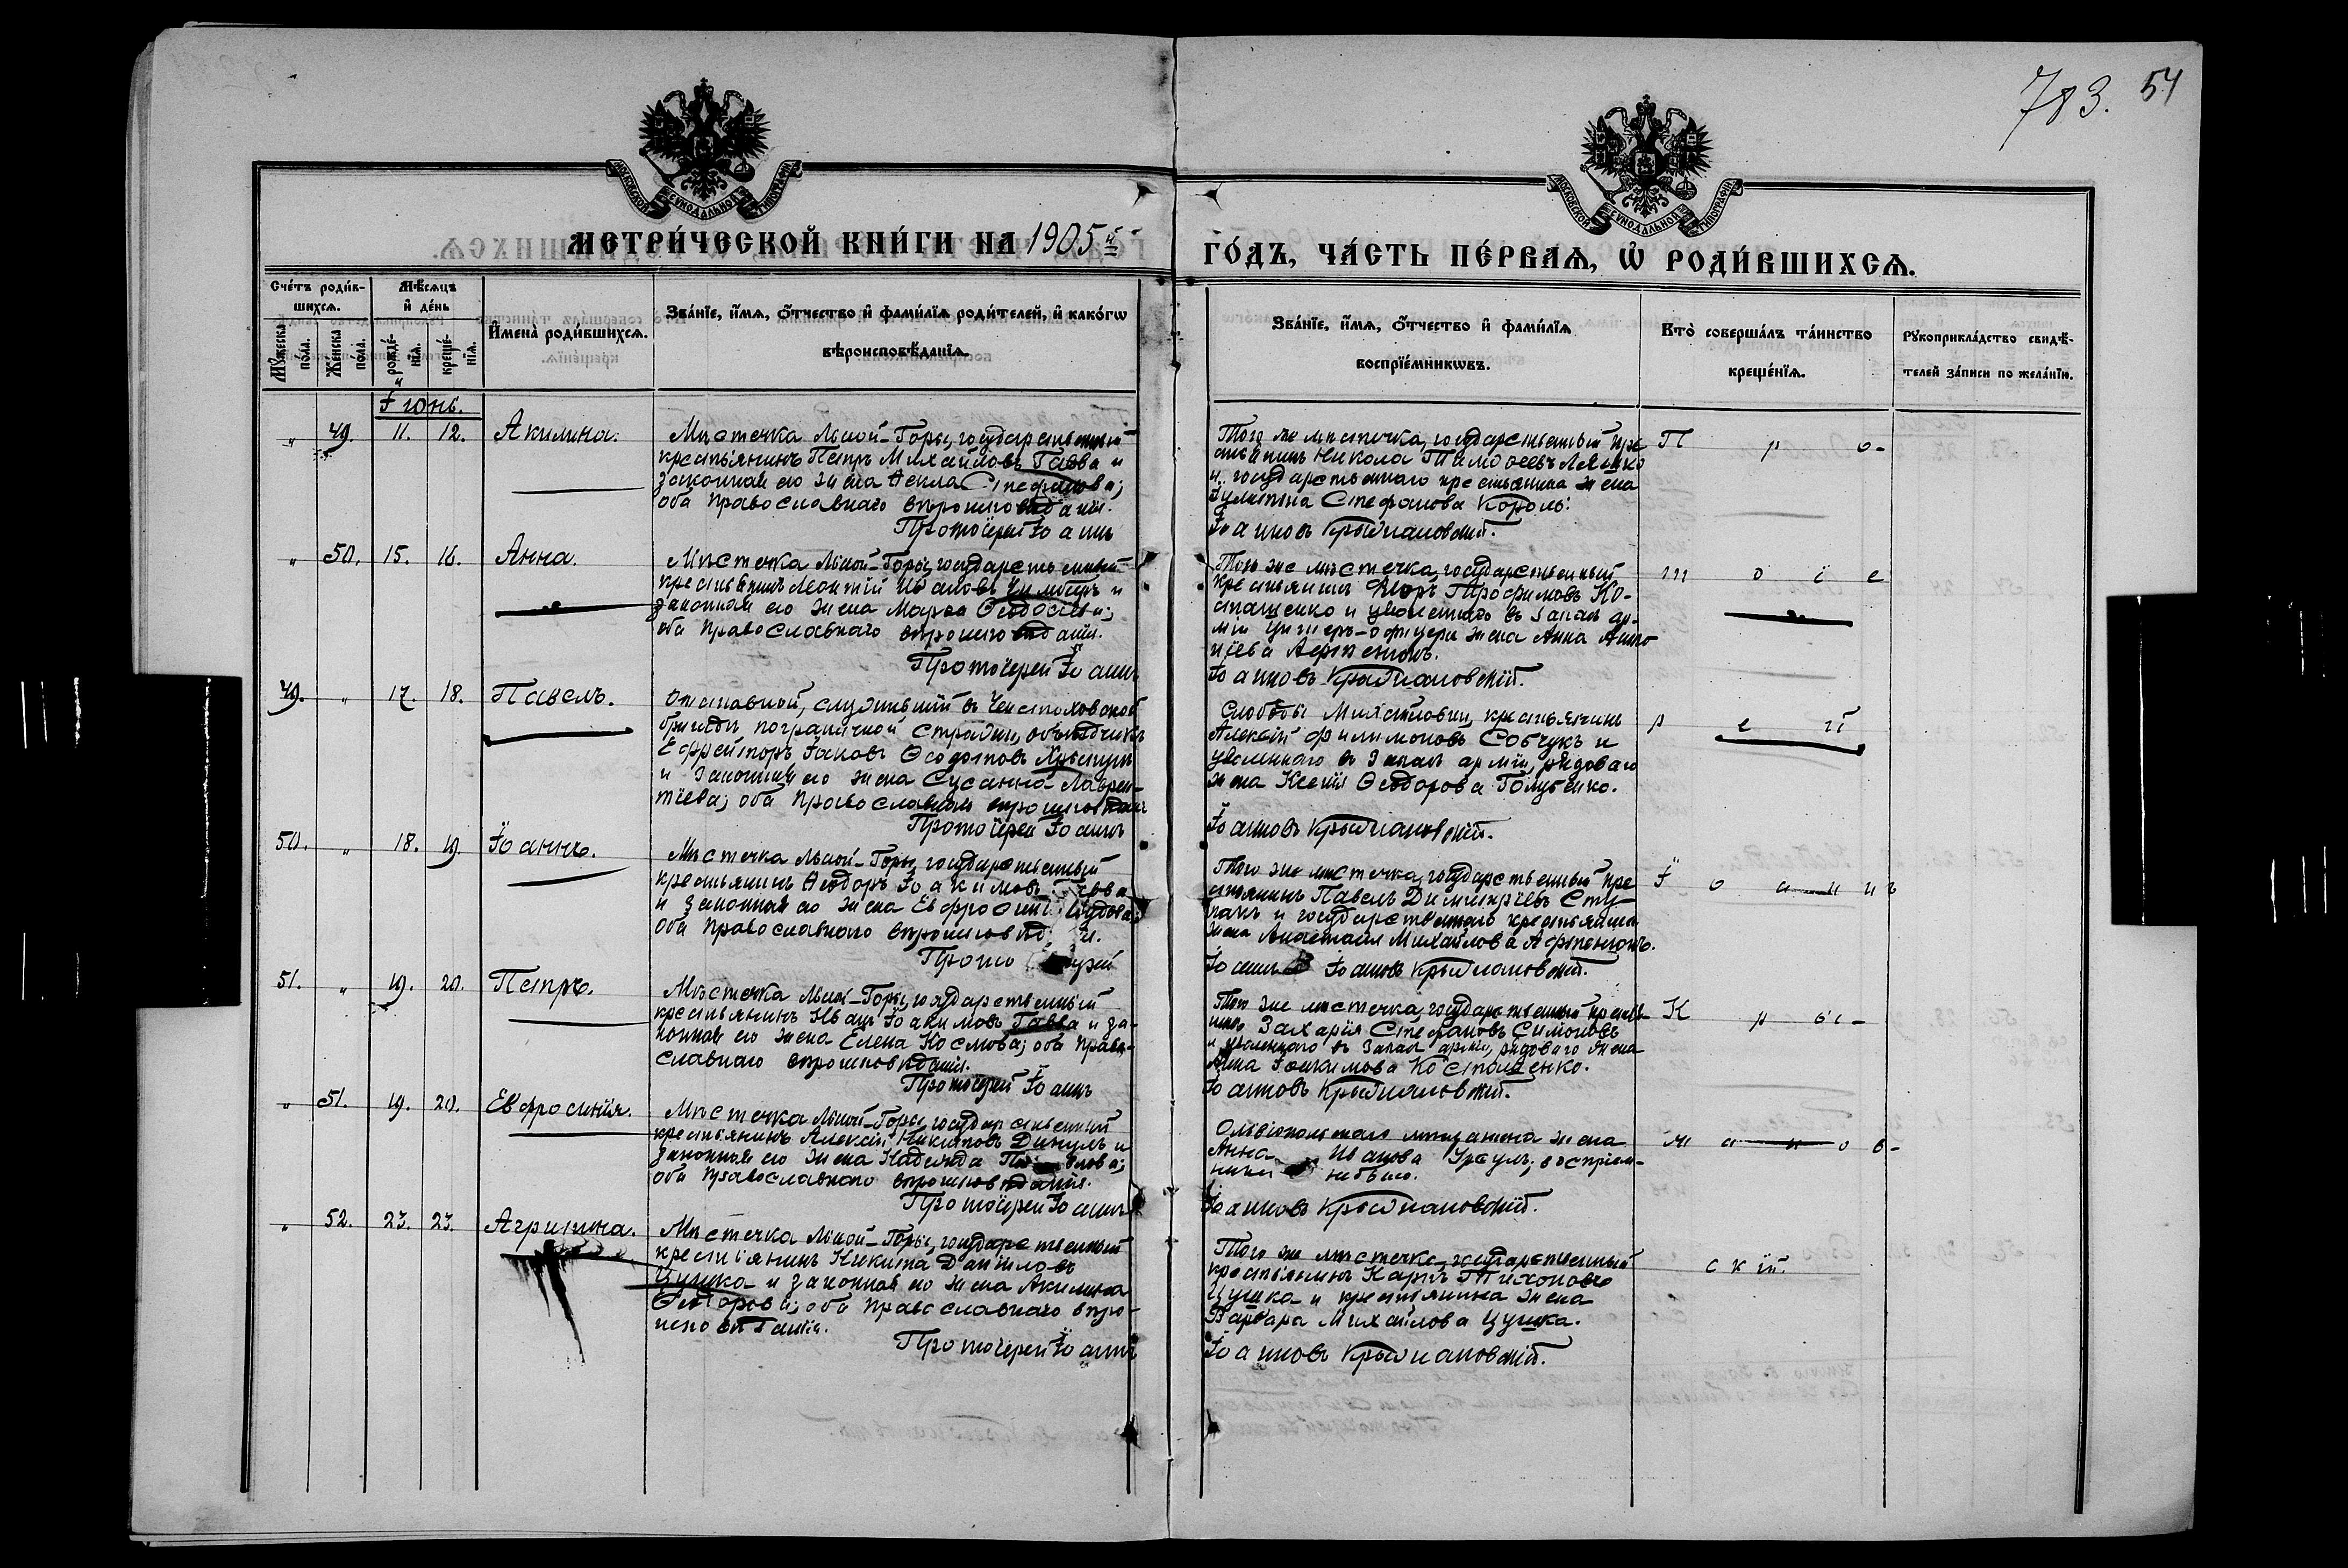 783. 54
МОСКОВСКОЙ СѴНОДАЛЬНОЙ ТИПОГРАФІИ
МОСКОВСКОЙ СѴНОДАЛЬНОЙ ТИПОГРАФІИ
МЕТРИ́ЧЕСКОЙ КНИ́ГИ НА 1905й
ГО́ДЪ, ЧА́СТЬ ПЕ́РВАѦ, Ѡ҆ РОДИ́ВШИХСѦ.
Сче́тъ роди́в-
шихсѧ.
Мꙋ́жеска по́ла.
Же́нска по́ла.
Мѣ́сѧцъ
и҆ де́нь
рожде́-
нїѧ.
креще́-
нїѧ.
И҆мена̀ роди́вшихсѧ.
Зва́нїе, и҆́мѧ, ѻ҆́тчество и҆ фами́лїѧ роди́телей, и҆ како́гѡ
вѣроисповѣ́данїѧ.
Зва́нїе, и҆́мѧ, ѻ҆́тчество и҆ фами́лїѧ
воспрїе́мникѡвъ.
Кто̀ соверша́лъ та́инство
креще́нїѧ.
Рꙋкоприкла́дство свидѣ́-
телей за́писи по жела́нїю.
Іюнь.
„ 49. 11. 12. Акилина.
Мѣстечка Лысой-Горы, государственный
крестьянинъ Петръ Михайловъ Гавва и
законная его жена Ѳекла Стефанова;
оба православнаго вѣроисповѣданія.
Протоіерей Іоаннъ
Того же мѣстечка, государственный кре
стьянинъ Никола Тимоѳеевъ Ляшко
и государственнаго крестьянина жена
Іулитта Стефанова Король.
Іоанновъ Крыжановскій.
П р о-
„ 50. 15. 16. Анна.
Мѣстечка Лысой-Горы, государственный
крестьянинъ Леонтій Ивановъ и
законная его жена Марѳа Ѳеодосіева;
оба православнаго вѣроисповѣданія.
Протоіерей Іоаннъ
Того же мѣстечка, государственный
крестьянинъ Трофимовъ Ко-
сташенко и уволеннаго въ запасъ ар-
міи унтеръ-офицера жена Анна Анто
ніева
Іоанновъ Крыжановскій.
т о і е
49. „ 17. 18. Павелъ.
Отставной, служившій въ Ченстоховской
бригадѣ, пограничной стражи, объѣздчикъ
Ефрейторъ Іаковъ Ѳеодотовъ
и законная его жена Сусанна Лаврен-
тіева; оба православнаго вѣроисповѣданія
Протоіерей Іоаннъ
Слободы Михайловки, крестьянинъ
Алексій Филимоновъ Собчукъ и
уволеннаго въ запасъ арміи, рядоваго
жена Ксенія Ѳеодорова Голубенко.
Іоанновъ Крыжановскій.
р е й
50. „ 18. 19. Іоаннъ.
Мѣстечка Лысой-Горы, государственный
крестьянинъ Ѳеодоръ Іоакимовъ
и законная его жена Евфросинія
оба православнаго
Протоіерей
Того же мѣстечка, государственный кре
стьянинъ Павелъ Димитріевъ Сту-
пакъ и государственнаго крестьянина
жена Анастасія Михайлова
Іоаннъ Іоанновъ Крыжановскій.
І о а н н ъ
51. „ 19. 20. Петръ.
Мѣстечка Лысой-Горы, государственный
крестьянинъ Иванъ Іоакимовъ Гавва и за-
конная его жена Елена Космова; оба право-
славнаго вѣроисповѣданія.
Протоіерей Іоаннъ
Того же мѣстечка, государственный крестья
нинъ Захарія Стефановъ Симоновъ
и уволеннаго въ запасъ арміи, рядоваго жена
Анна Іоакимова Косташенко.
Іоанновъ Крыжановскій.
К р ы-
„ 51. 19. 20. Евфросинія.
Мѣстечка Лысой-Горы, государственный
крестьянинъ Алексій Никитовъ Динулъ и
законная его жена Надежда
оба православнаго вѣроисповѣданія.
Протоіерей Іоаннъ
Ольвіопольскаго мѣщанина жена
Анна Иванова Урсулъ; воспріем-
ника не было.
Іоанновъ Крыжановскій.
ж а н о в-
„ 52. 23. 23. Агриппина.
Мѣстечка Лысой-Горы, государственный
крестьянинъ Никита Даніиловъ
Цушка и законная его жена Акилина
Ѳеодорова; оба православнаго вѣро-
исповѣданія.
Протоіерей Іоаннъ
Того же мѣстечка, государственный
крестьянинъ Карпъ Тихоновъ
Цушка и крестьянина жена
Варвара Михайлова Цушка.
Іоанновъ Крыжановскій.
с к і й.